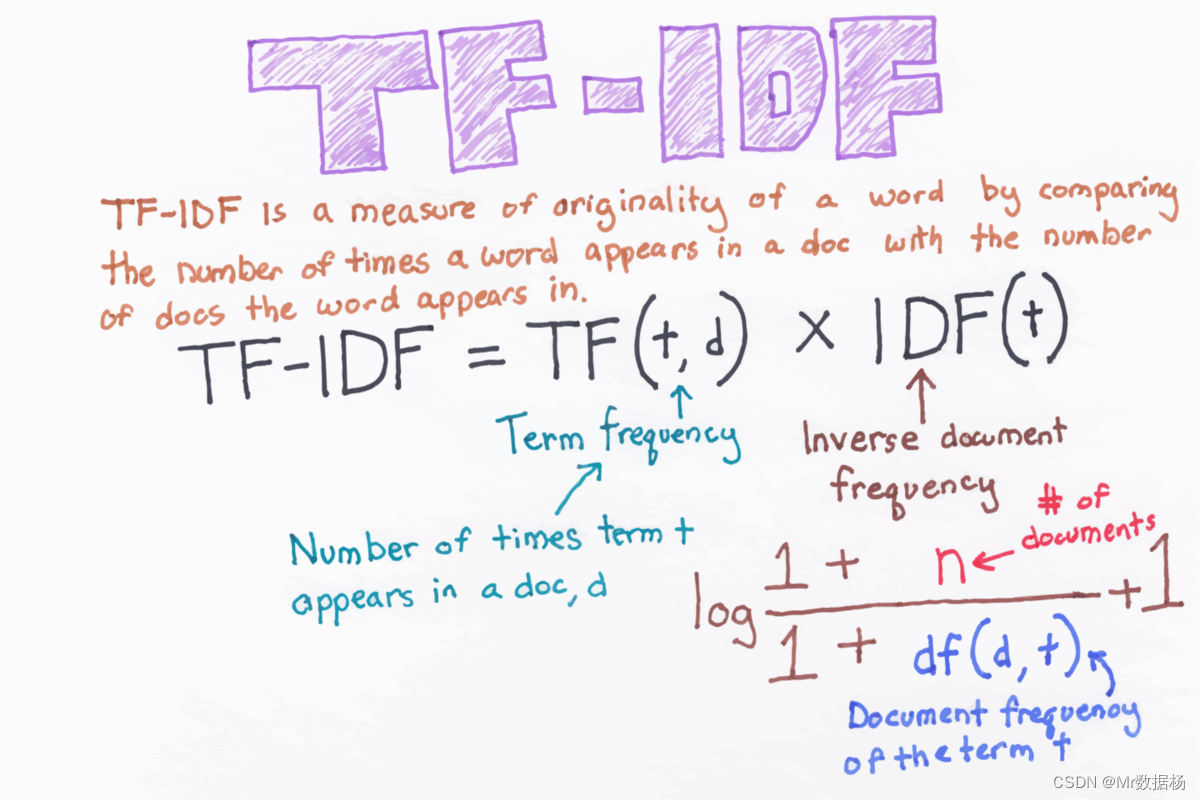 TF-IDF
TF-IDF is a measure of originality of a word by comparing
the number of times a word appears in a doc with the number
of docs the word appears in.
TF-IDF = TF(t, d) × IDF(t)
Term frequency
Inverse document
frequency
Number of times term t
appears in a doc, d
# of
documents
1 + n
log + 1
1 + df(d, t)
Document frequency
of the term t
CSDN @Mr数据杨